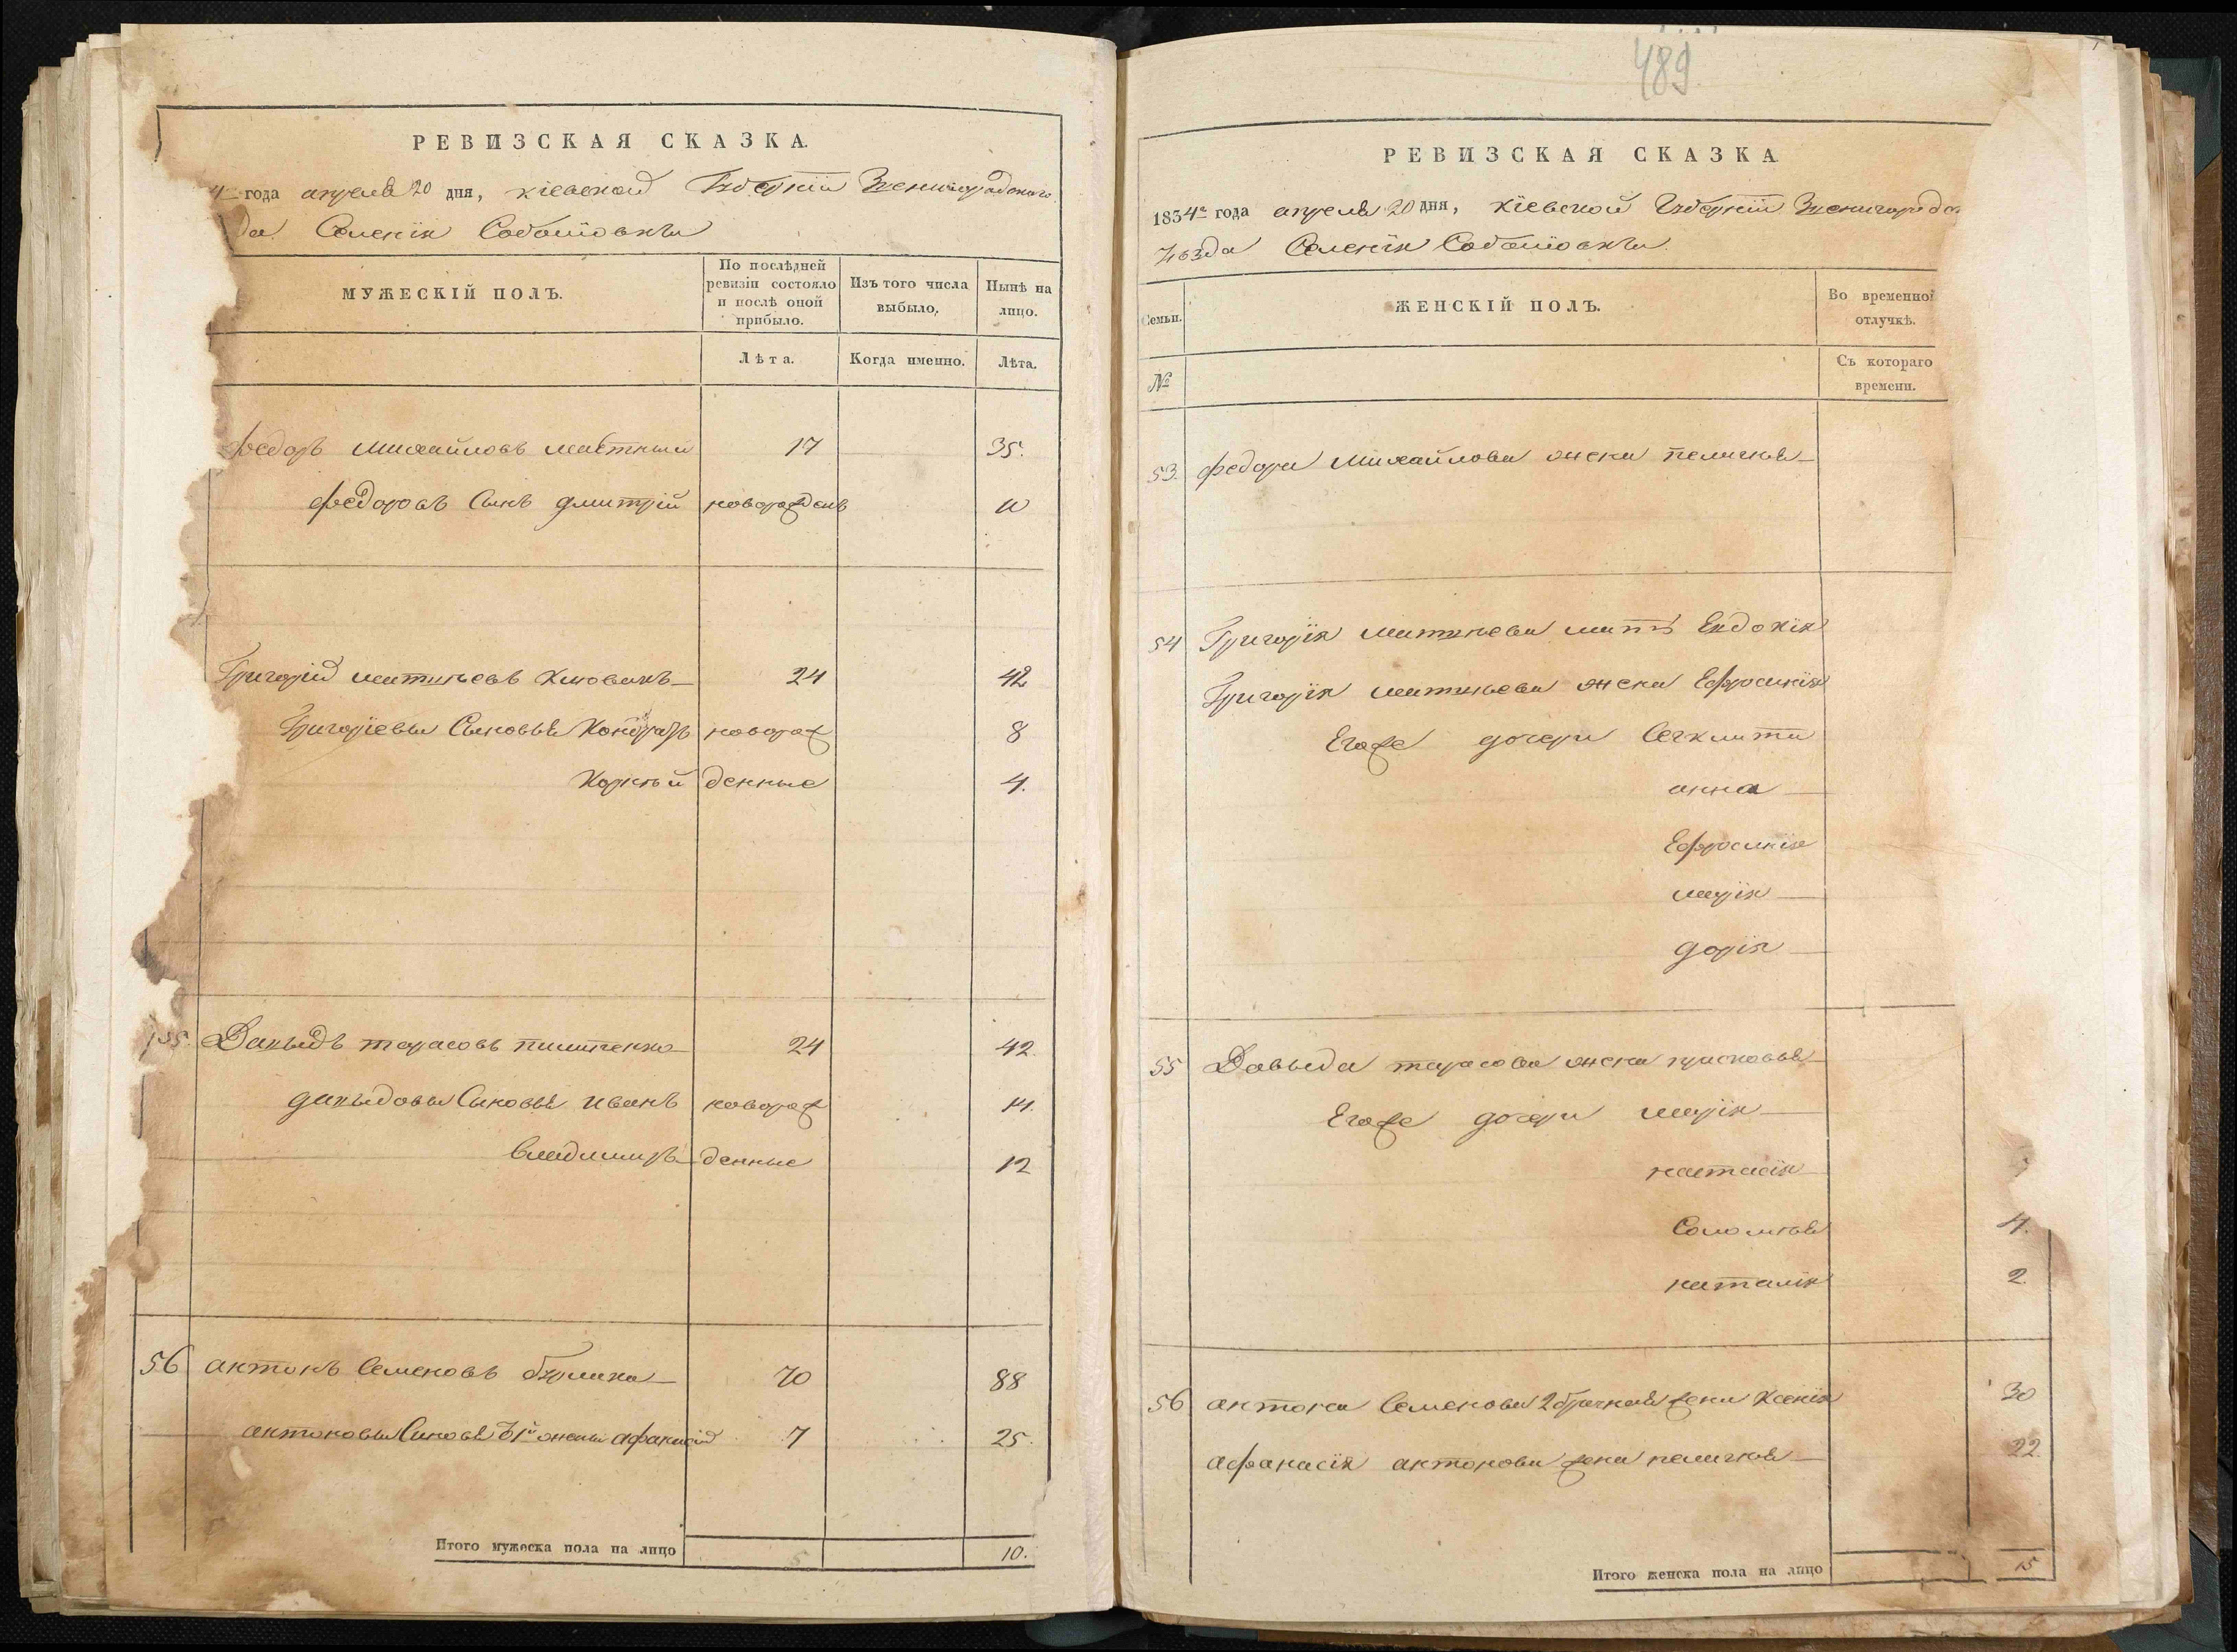 РЕВИЗСКАЯ СКАЗКА.
года апреля 20 дня, Кіевской Губерніи Звенигородского
да Селенія Соболіовки
МУЖЕСКІЙ ПОЛЪ.
По послѣдней ревизіи состояло и послѣ оной прибыло.
Изъ того числа выбыло,
Нынѣ на лицо.
Лѣта.
Когда именно.
Лѣта.
Федоръ Михайловъ 17 35.
Федоровъ Сынъ Дмитрій новорожденъ
Григорій Матвѣевъ 24 42
Григоріевы Сыновья Кондратъ новорож 8
Корнѣй денные 4.
55. Давыдъ Тарасовъ 24 42.
Давыдовы Сыновья Иванъ новорож 14.
Владимиръ денные 12
56 Антонъ Семеновъ 70 88
Антоновы Сыновья 1й жены Афанасій 7 25.
Итого мужеска пола на лицо 10.
489
РЕВИЗСКАЯ СКАЗКА
1834го года апреля 20 дня, Кіевской Губерніи Звенигородс
уѣзда Селенія Соболіовки.
Семьи.
ЖЕНСКІЙ ПОЛЪ.
Во временной отлучкѣ.
№
Съ котораго времени.
53. Федора Михайлова жена Пелагия
54 Григорія Матвѣева мать Евдокія
Григорія Матвѣева жена Ефросинія
Егоже дочери
анна
Ефросинія
марія
дарія
55 Давыда Тарасова жена Прасковья
Егоже дочери Марія
настасія
Соломія 4.
наталія 2
56 Антона Семенова 2 брачная жена Ксенія 30
Афанасія Антонова жена Пелагия 22.
Итого женска пола на лицо 15